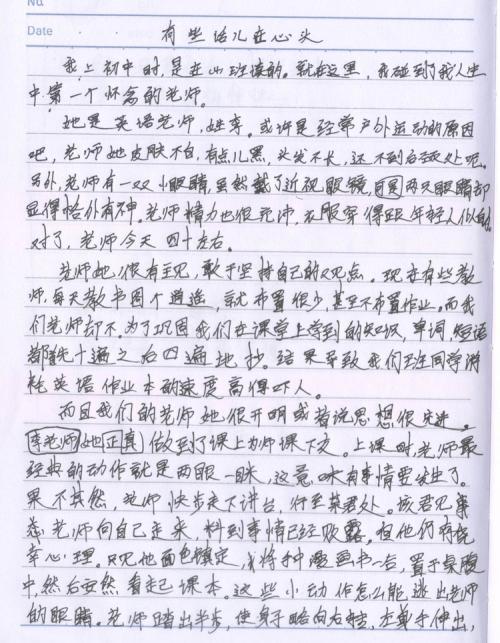 No.
Date
有些话儿在心头
我上初中时,是在山班读的。就在这里,我碰到了我人生
中第一个怀念的老师。
她是英语老师,姓李。或许是经常户外运动的原因
吧,老师她皮肤不白,有点儿黑,头发不长,还不到后颈处呢。
另外,老师有一双小眼睛,虽然戴了近视眼镜,因两只眼睛却
显得格外有神,老师精力也很充沛,衣服穿得跟年轻人似的
对了,老师今天四十左右。
老师她很有主见,敢于坚持自己的观点。现在有些教
师,每天教书图个逍遥,就布置很少,甚至不布置作业。而我
们老师却不。为了巩固我们在课堂上学到的知识,单词,短语
都抄十遍之后四遍地抄。结果导致我们班同学消
耗英语作业本的速度高得吓人。
而且我们的老师她很开明或者说思想很先进。
李老师她正真做到了课上为师课下友。上课时,老师最
经典的动作就是两眼一眯,这意味有事情要发生了。
果不其然,老师快步走下讲台,行至某君处。该君见
老师向自己走来,料到事情已经败露。但他仍有侥
幸心理。只见他面色镇定,将手中漫画书一合,置于桌膛
中,然后安然看起课本。这些小动作怎么能逃出老师
的眼睛。老师踏出半步,使身子略向右转,左手伸出,